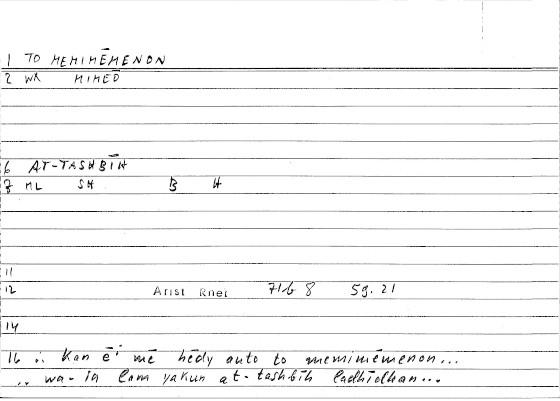 1 TO MEMIMĒMENON
2 WK MIMED
6 AT-TASHBĪH
7 ML SH B H
11
12 Arist Rhet 71b 8 59.21
14
16 ∴ kan ēi mē hēdy auto to memimēmenon...
∴ wa-in lam yakun at-tashbīh ladhīdhan...